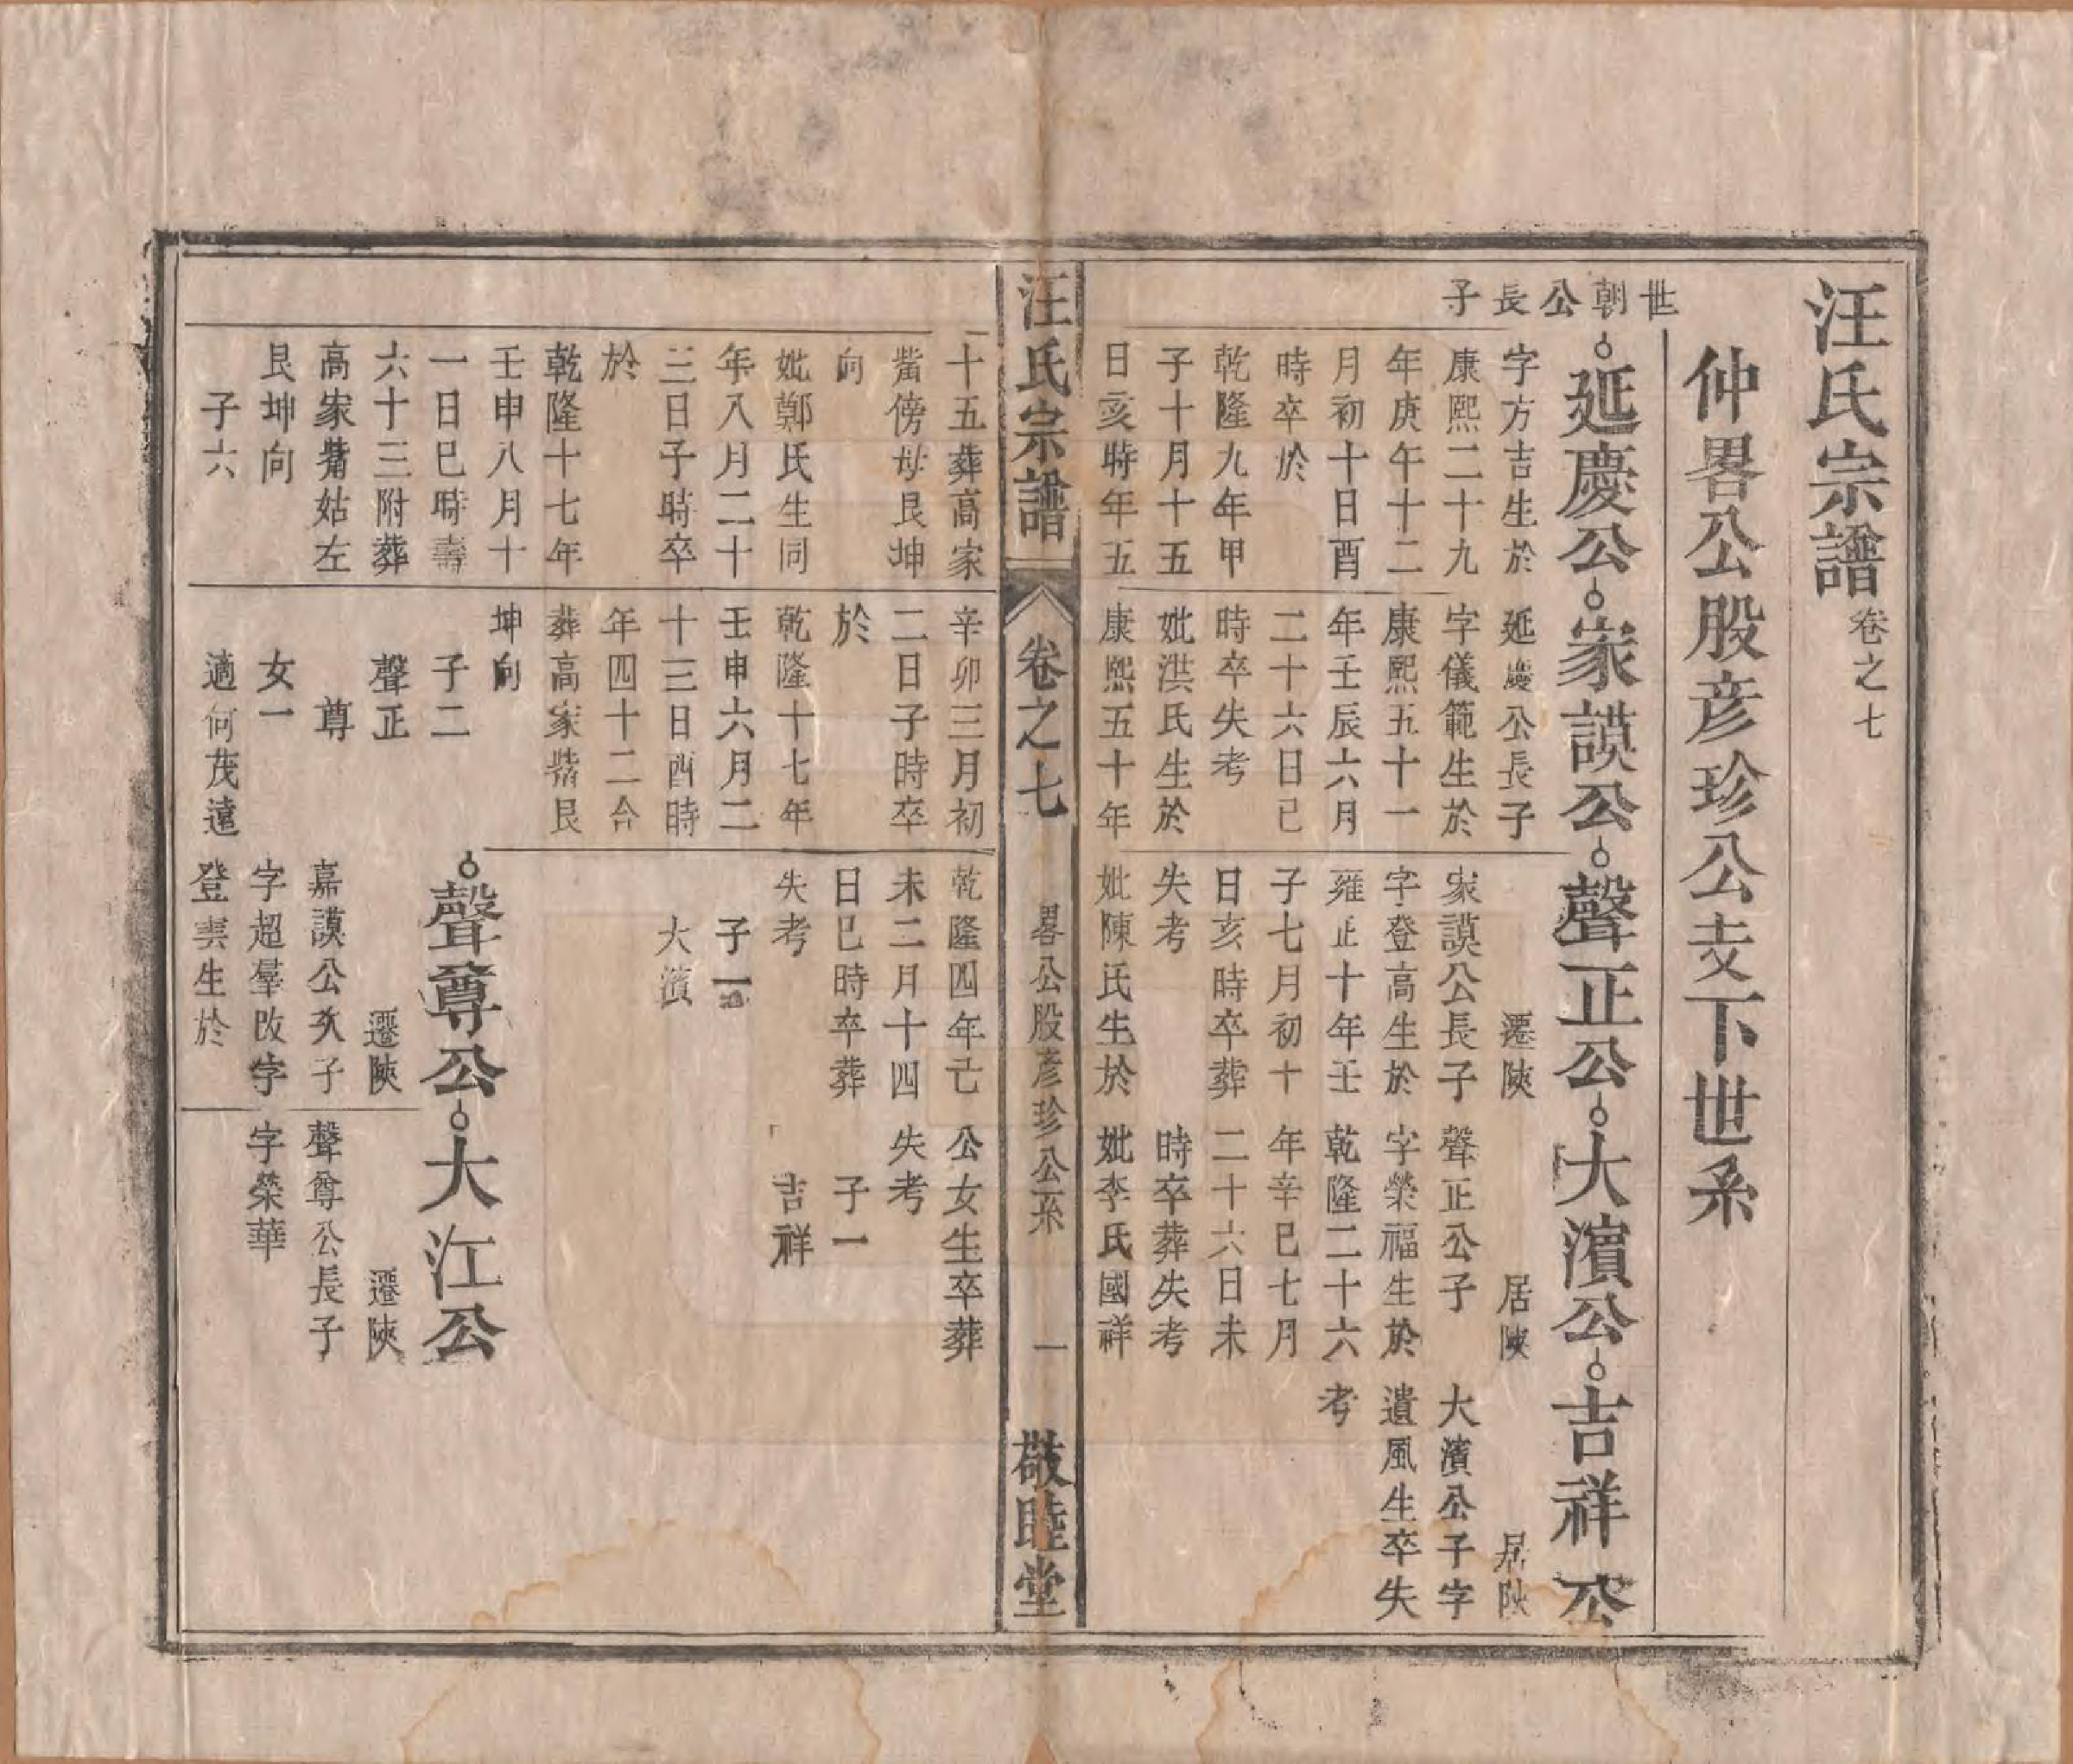 汪氏宗譜 卷之七
仲畧公股彥珍公支下世系
世朝公長子
延慶公 家謨公 聲正公 大濱公 吉祥公
字方吉生於
康熙二十九
年庚午十二
月初十日酉
時卒於
乾隆九年甲
子十月十五
日亥時年五
延慶公長子
字儀範生於
康熙五十一
年壬辰六月
二十六日巳
時卒失考
妣洪氏生於
康熙五十年
遷陝
家謨公長子
字登高生於
雍正十年壬
子七月初十
日亥時卒葬
失考
妣陳氏生於
居陝
聲正公子
字榮福生於
乾隆二十六
年辛巳七月
二十六日未
時卒葬失考
妣李氏國祥
居陝
大濱公子字
遺風生卒失
考
汪氏宗譜 卷之七 畧公股彥珍公系 一 敬睦堂
十五葬高家
嘴傍母艮坤
向
妣鄭氏生同
年八月二十
三日子時卒
於
乾隆十七年
壬申八月十
一日巳時壽
六十三附葬
高家嘴姑左
艮坤向
子六
辛卯三月初
二日子時卒
於
乾隆十七年
壬申六月二
十三日酉時
年四十二合
葬高家嘴艮
坤向
子二
聲正
尊
女一
適何茂遠
乾隆四年己
未二月十四
日巳時卒葬
失考
子一
大濱
公女生卒葬
失考
子一
吉祥
聲尊公 大江公
遷陝
嘉謨公次子
字超羣改字
登雲生於
遷陝
聲尊公長子
字榮華